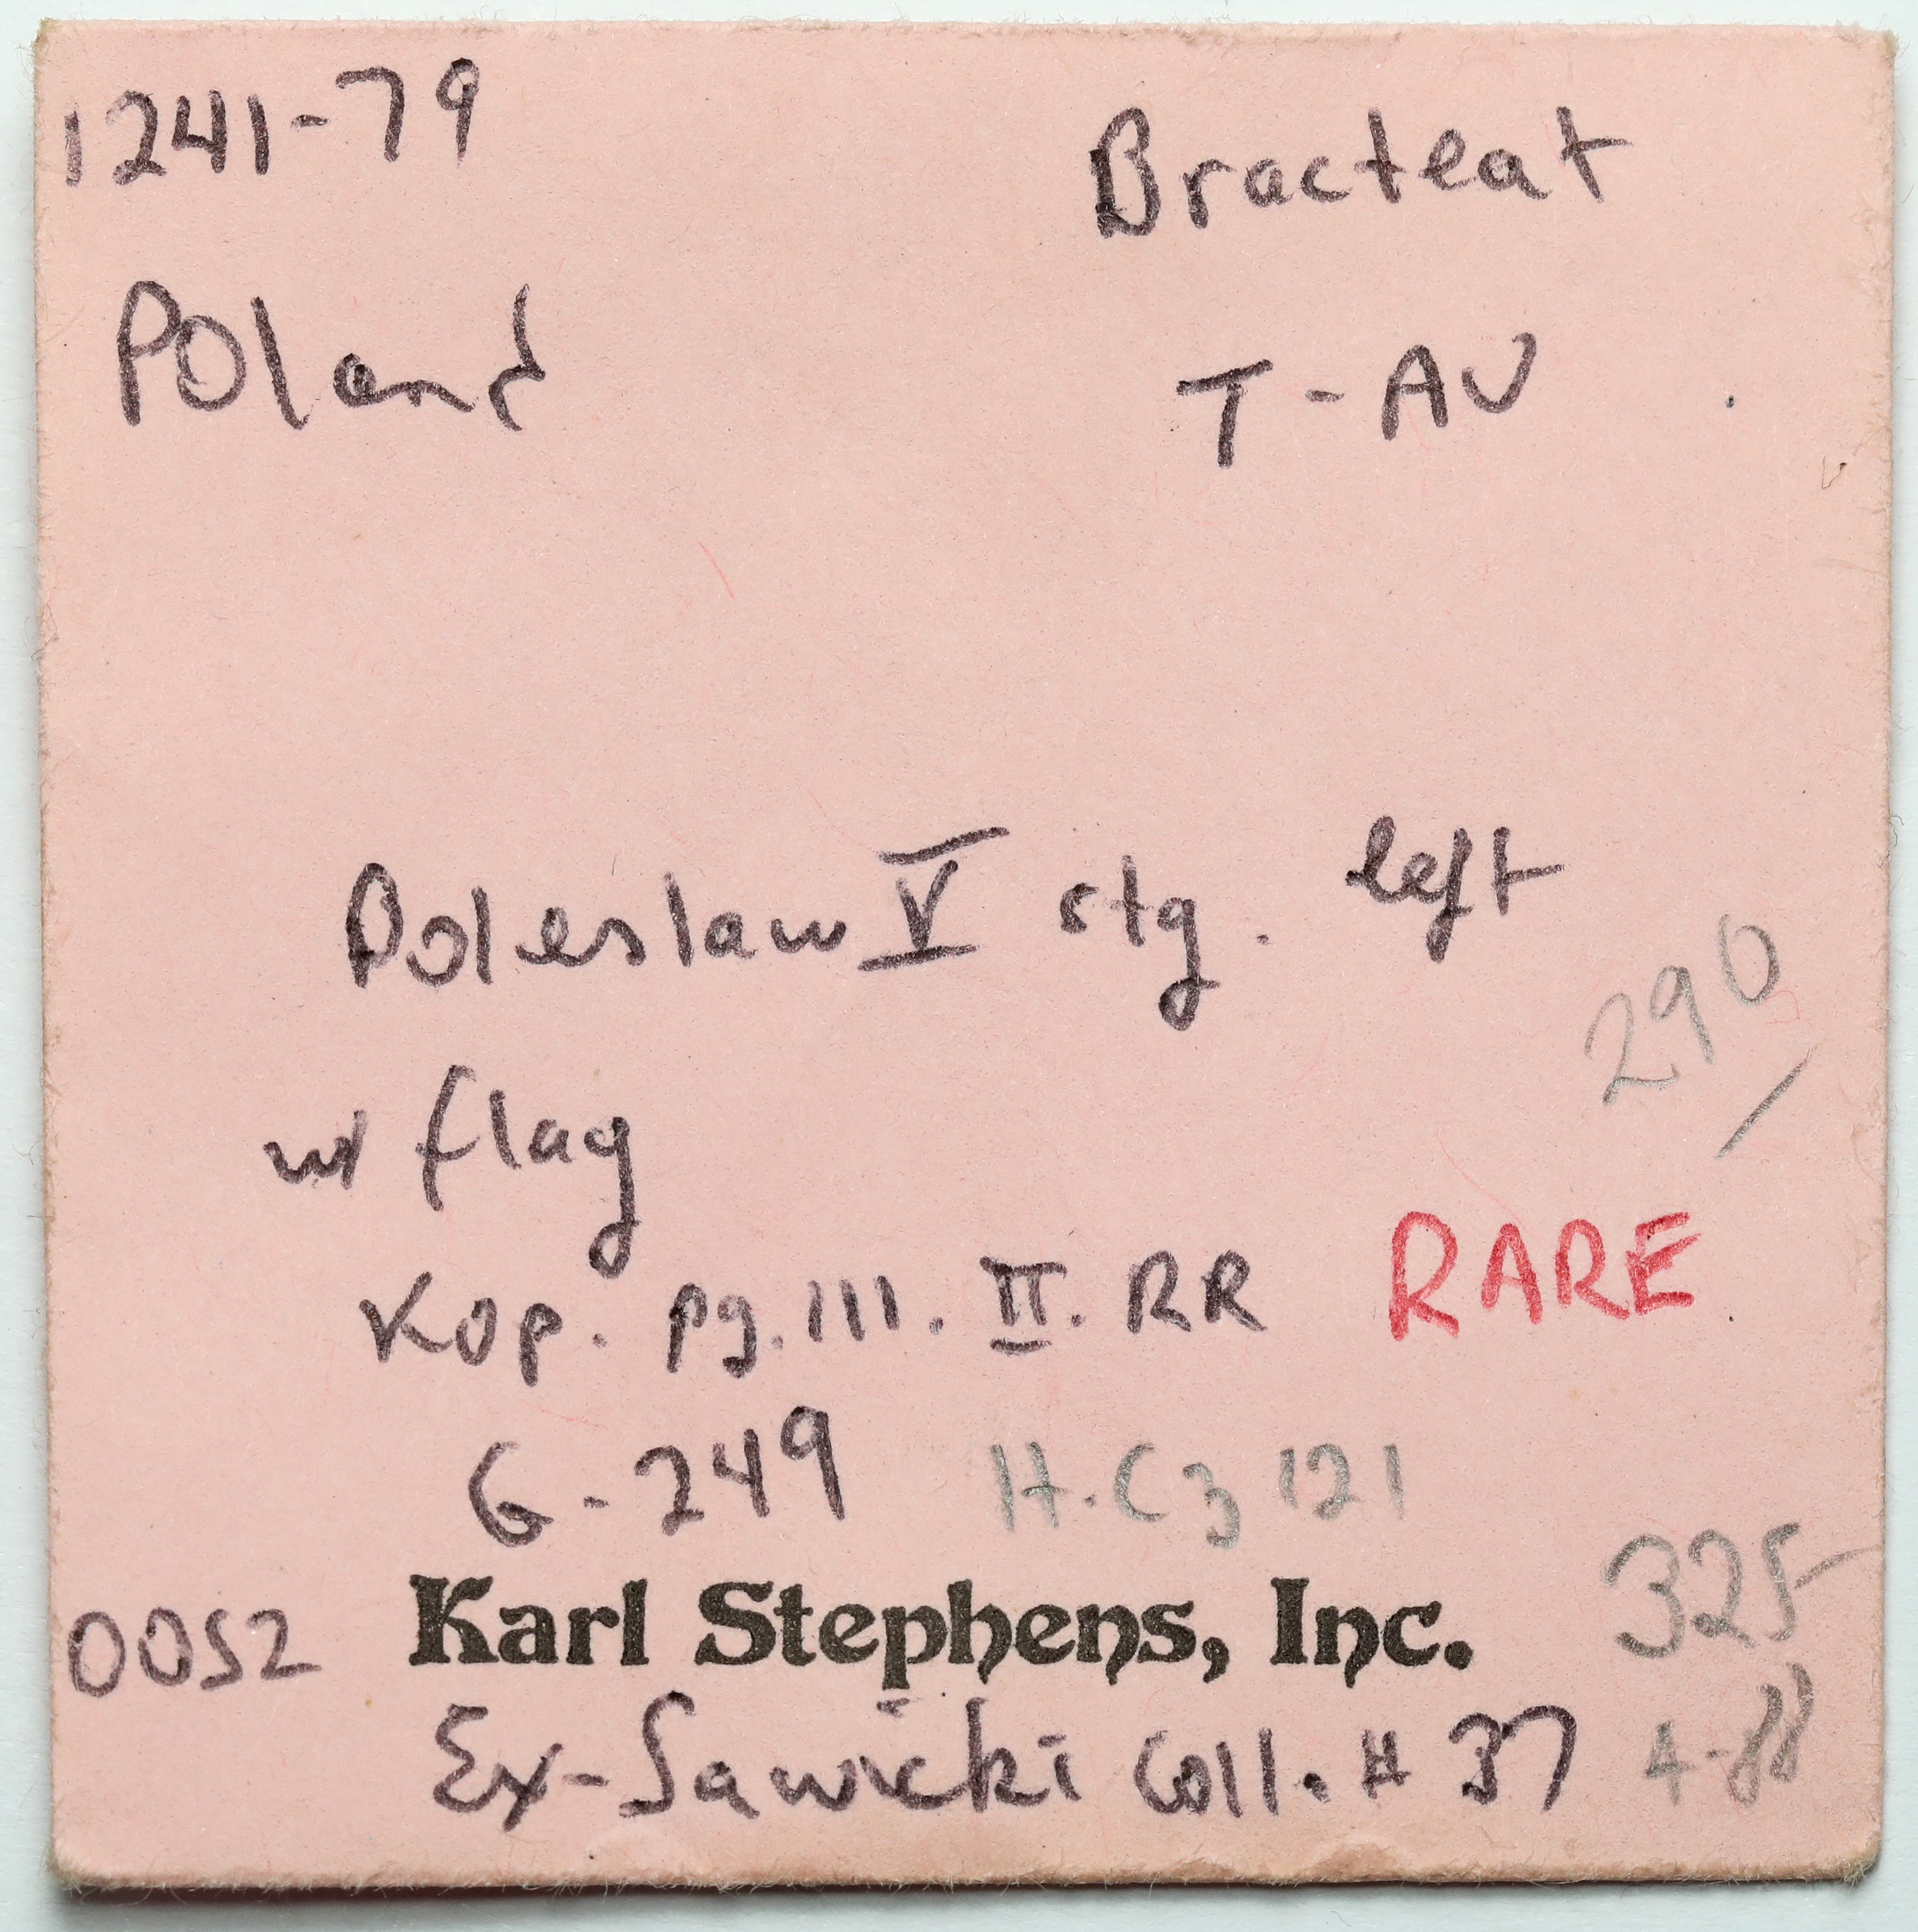 1241-79 Bracteat
Poland T-AU
Boleslaw V stg. left
290
w/ flag
Kop. pg. 111. II. RR RARE
G-249 H.Cz 121
0052 Karl Stephens, Inc. 325
Ex-Sawicki Coll. # 37 A-88